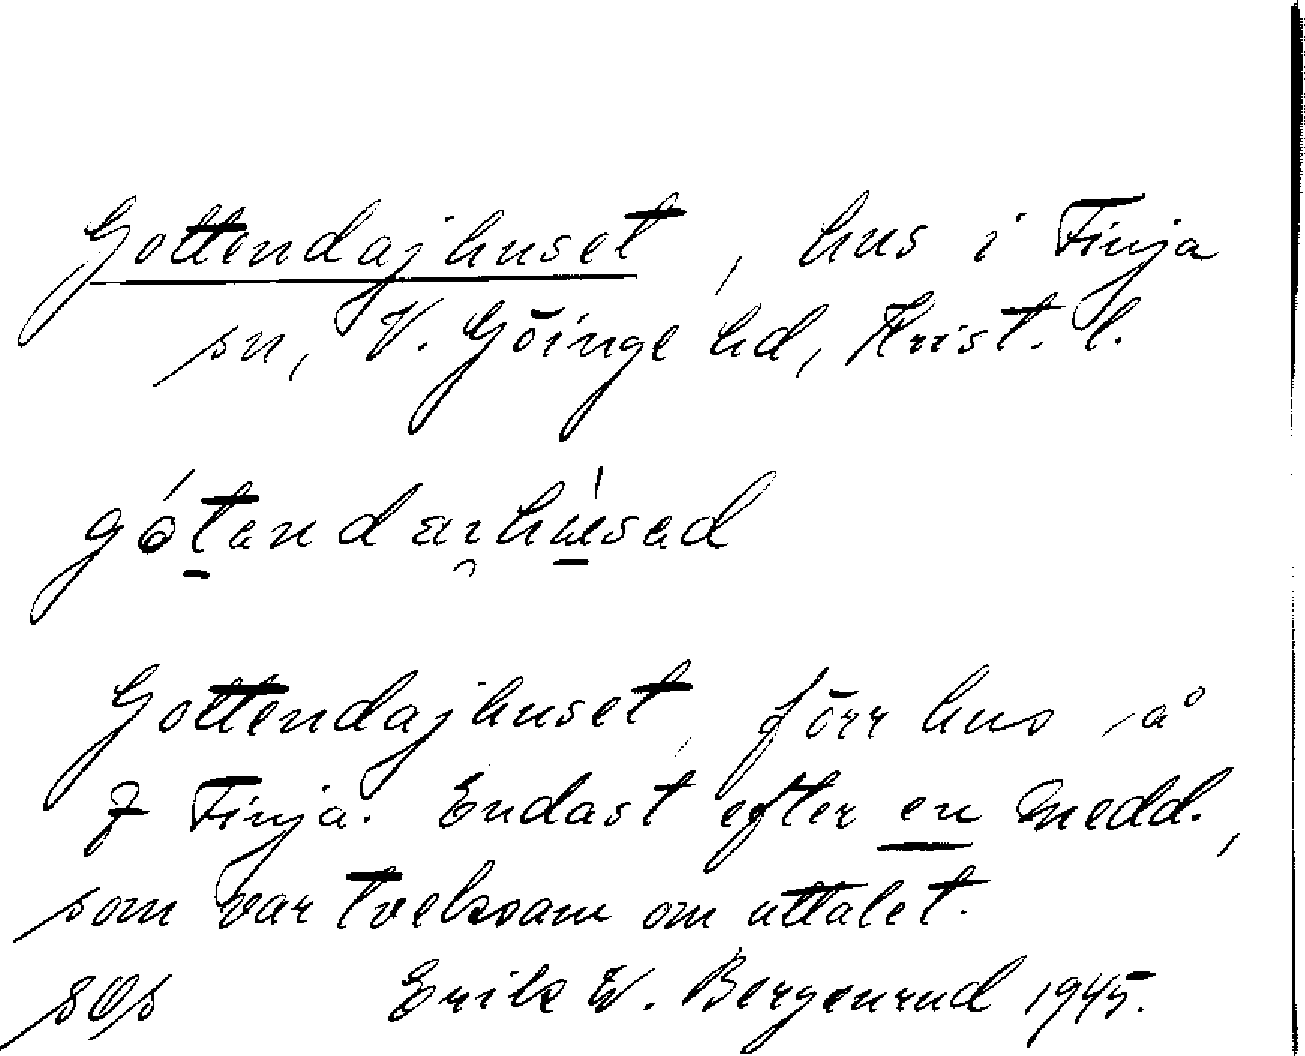 Gottendajhuset, hus i Finja
sn, V. Göinge hd, Krist. l.
Gottendajhuset, förr hus å
7 Finja. Endast efter en medd.,
som var tveksam om uttalet.
Erik W. Bergenrud 1945.